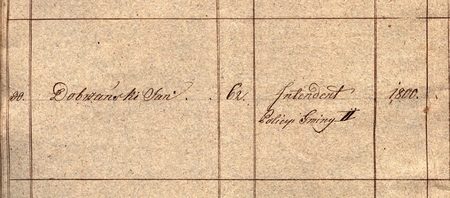 30. Dobrzański Jan . 62. Intendent 1800.
Policyi Gminy II